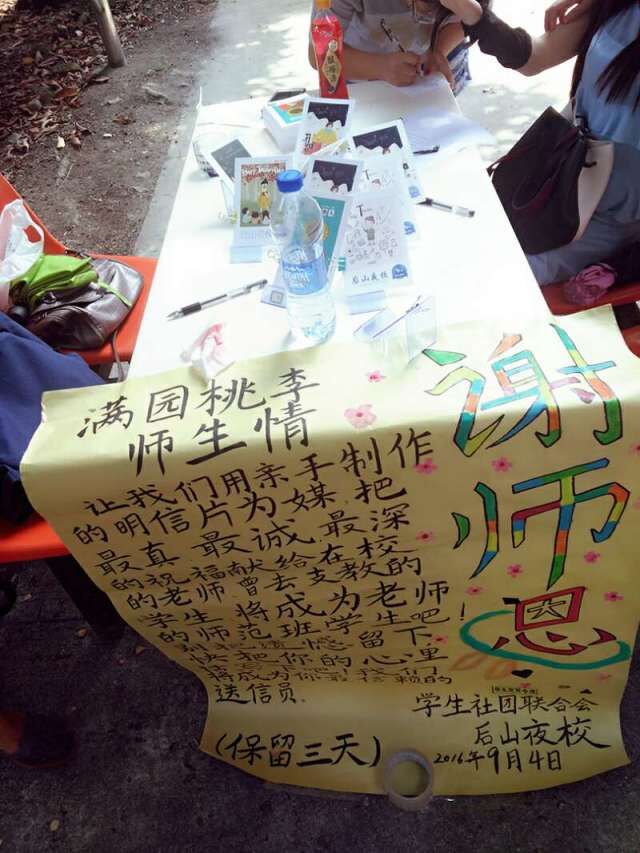 后山夜校
谢师恩
满园桃李
师生情
让我们用亲手制作
的明信片为媒,把
最真 最诚 最深
的祝福献给在校
的老师,曾去支教的
学生 将成为老师
的师范班学生吧!
别把遗憾留下
快把你的心里
将成为你最信赖的
送信员.
(保留三天)
学生社团联合会
后山夜校
2016年9月4日